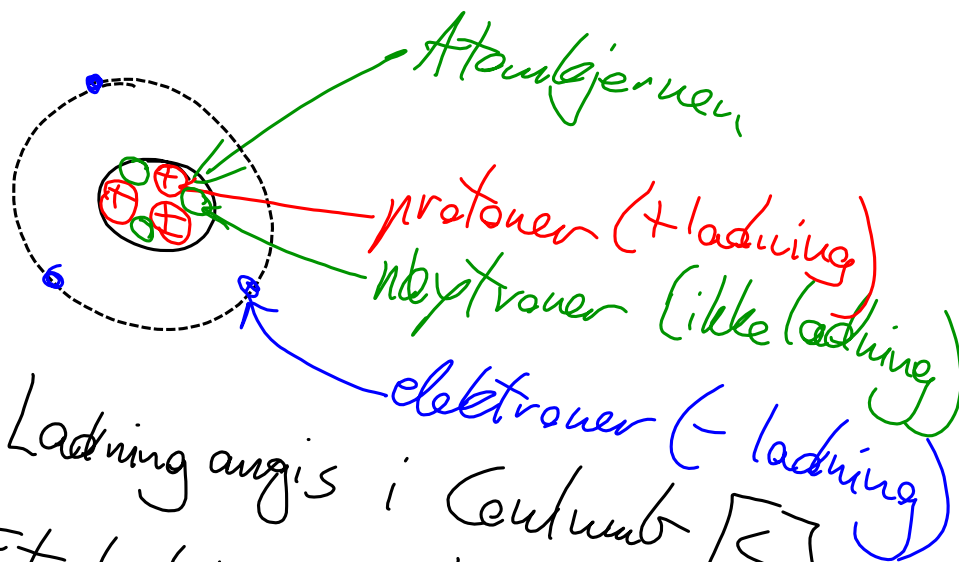 Atomkjernen
+
+
+
protoner (+ladning)
nøytroner (ikke ladning)
elektroner (- ladning)
Ladning angis i Coulumb [C]
Et